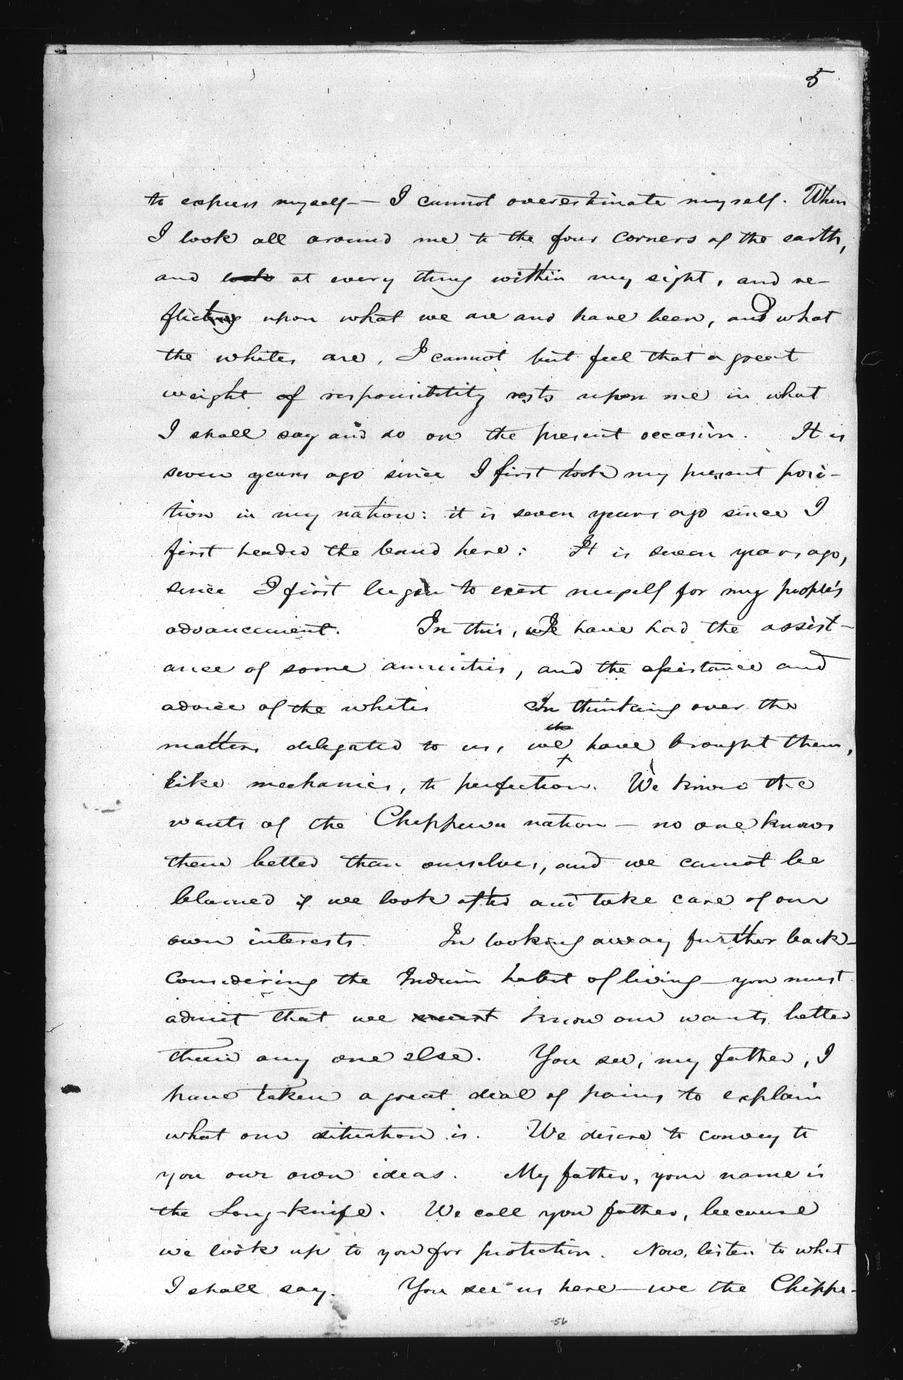 5
to express myself — I cannot overestimate myself. When
I look all around me to the four corners of the earth,
and look at every thing within my sight, and re-
flecting upon what we are and have been, and what
the whites are, I cannot but feel that a great
weight of responsibility rests upon me in what
I shall say and do on the present occasion. It is
seven years ago since I first took my present posi-
tion in my nation: it is seven years ago since I
first headed the band here: It is seven years ago,
since I first began to exert myself for my people's
advancement. In this, I have had the assist-
ance of some annuities, and the assistance and
advice of the whites In thinking over the
matters delegated to us, we have brought them,
like mechanics, to perfection. We know the
wants of the Chippewa nation — no one knows
them better than ourselves, and we cannot be
blamed if we look after and take care of our
own interests. In looking away further back —
Considering the Indian habit of living — you must
admit that we must know our wants better
than any one else. You see, my father, I
have taken a great deal of pains to explain
what our situation is. We desire to convey to
you our own ideas. My father, your name is
the Long-knife. We call you father, because
we look up to you for protection. Now, listen to what
I shall say. You see us here — we the Chippe-
56